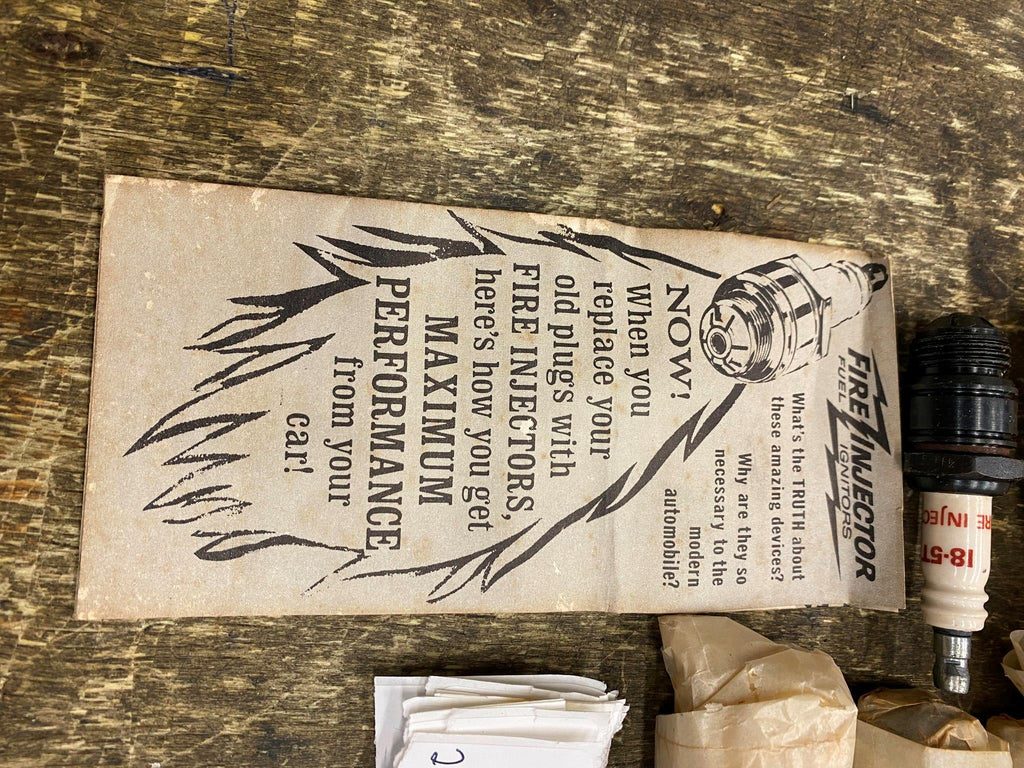 FIRE INJECTOR
FUEL IGNITORS
What's the TRUTH about
these amazing devices?
Why are they so
necessary to the
modern
automobile?
NOW!
When you
replace your
old plugs with
FIRE INJECTORS,
here's how you get
MAXIMUM
PERFORMANCE
from your
car!
18-5T